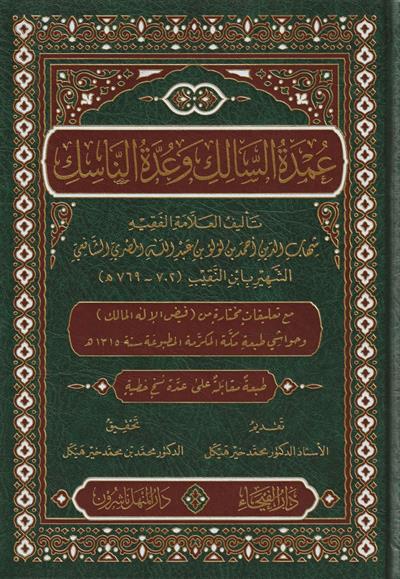 عُمْدَةُ السَّالِك وَعُدَّةُ النَّاسِك
تأليف العلامة الفقيه
شهاب الدين أحمد بن لؤلؤ بن عبد الله المصري الشافعي
الشهير بابن النقيب (٧٠٢ - ٧٦٩ هـ)
مع تعليقات مختارة من (فيض الإله المالك)
وحواشي طبعة مكة المكرمة المطبوعة سنة ١٣١٥ هـ
طبعة مقابلة على عدة نسخ خطية
تقديم
الأستاذ الدكتور محمد خير هيكل
تحقيق
الدكتور محمد بن محمد خير هيكل
دار الفيحاء
دار المنهل ناشرون